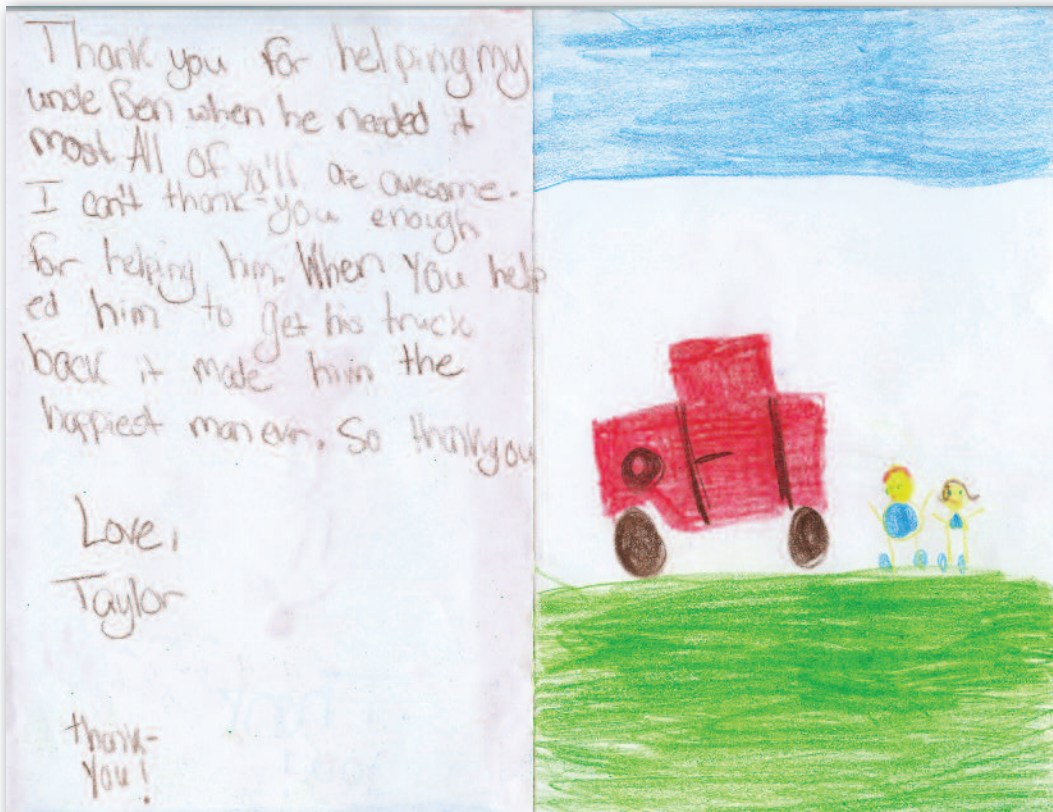 Thank you for helping my
uncle Ben when he needed it
most All of ya'll are awesome.
I can't thank-you enough
for helping him. When you help
ed him to get his truck
back it made him the
happiest man ever. So thankyou
Love,
Taylor
thank-
you!